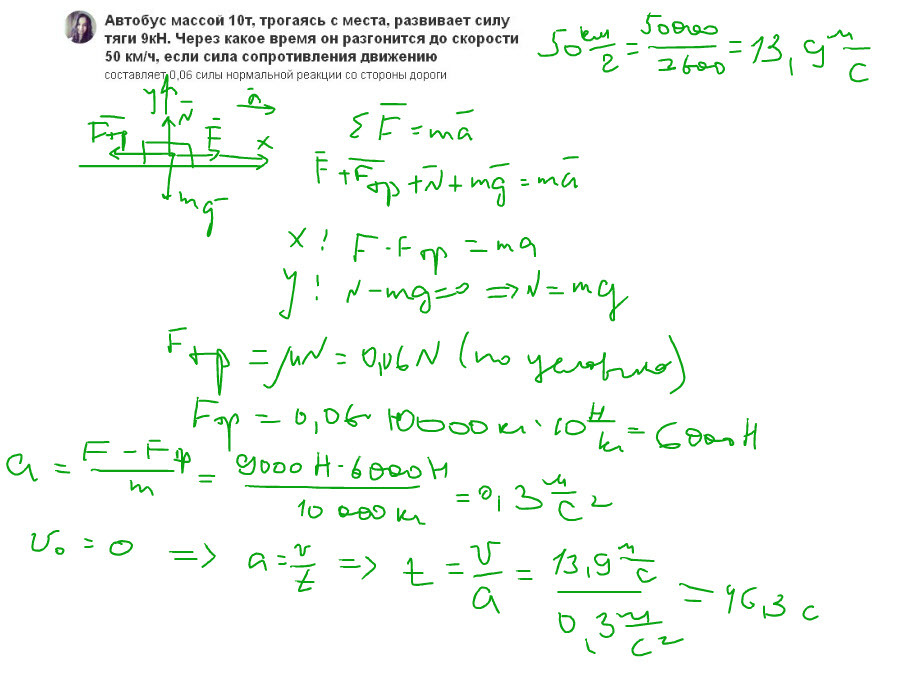 Автобус массой 10т, трогаясь с места, развивает силу
тяги 9кН. Через какое время он разгонится до скорости
50 км/ч, если сила сопротивления движению
составляет 0,06 силы нормальной реакции со стороны дороги
50 км/ч = 50000/3600 = 13,9 м/с
y N a
Fтр F x
mg
Σ F = ma
F + Fтр + N + mg = ma
x: F - Fтр = ma
y: N - mg = 0 => N = mg
Fтр = μN = 0,06N (по условию)
Fтр = 0,06 · 10000 кг · 10 Н/кг = 6000 Н
a = (F - Fтр)/m = (9000 Н - 6000 Н)/10 000 кг = 0,3 м/с²
v₀ = 0 => a = v/t => t = v/a = 13,9 м/с / 0,3 м/с² = 46,3 с